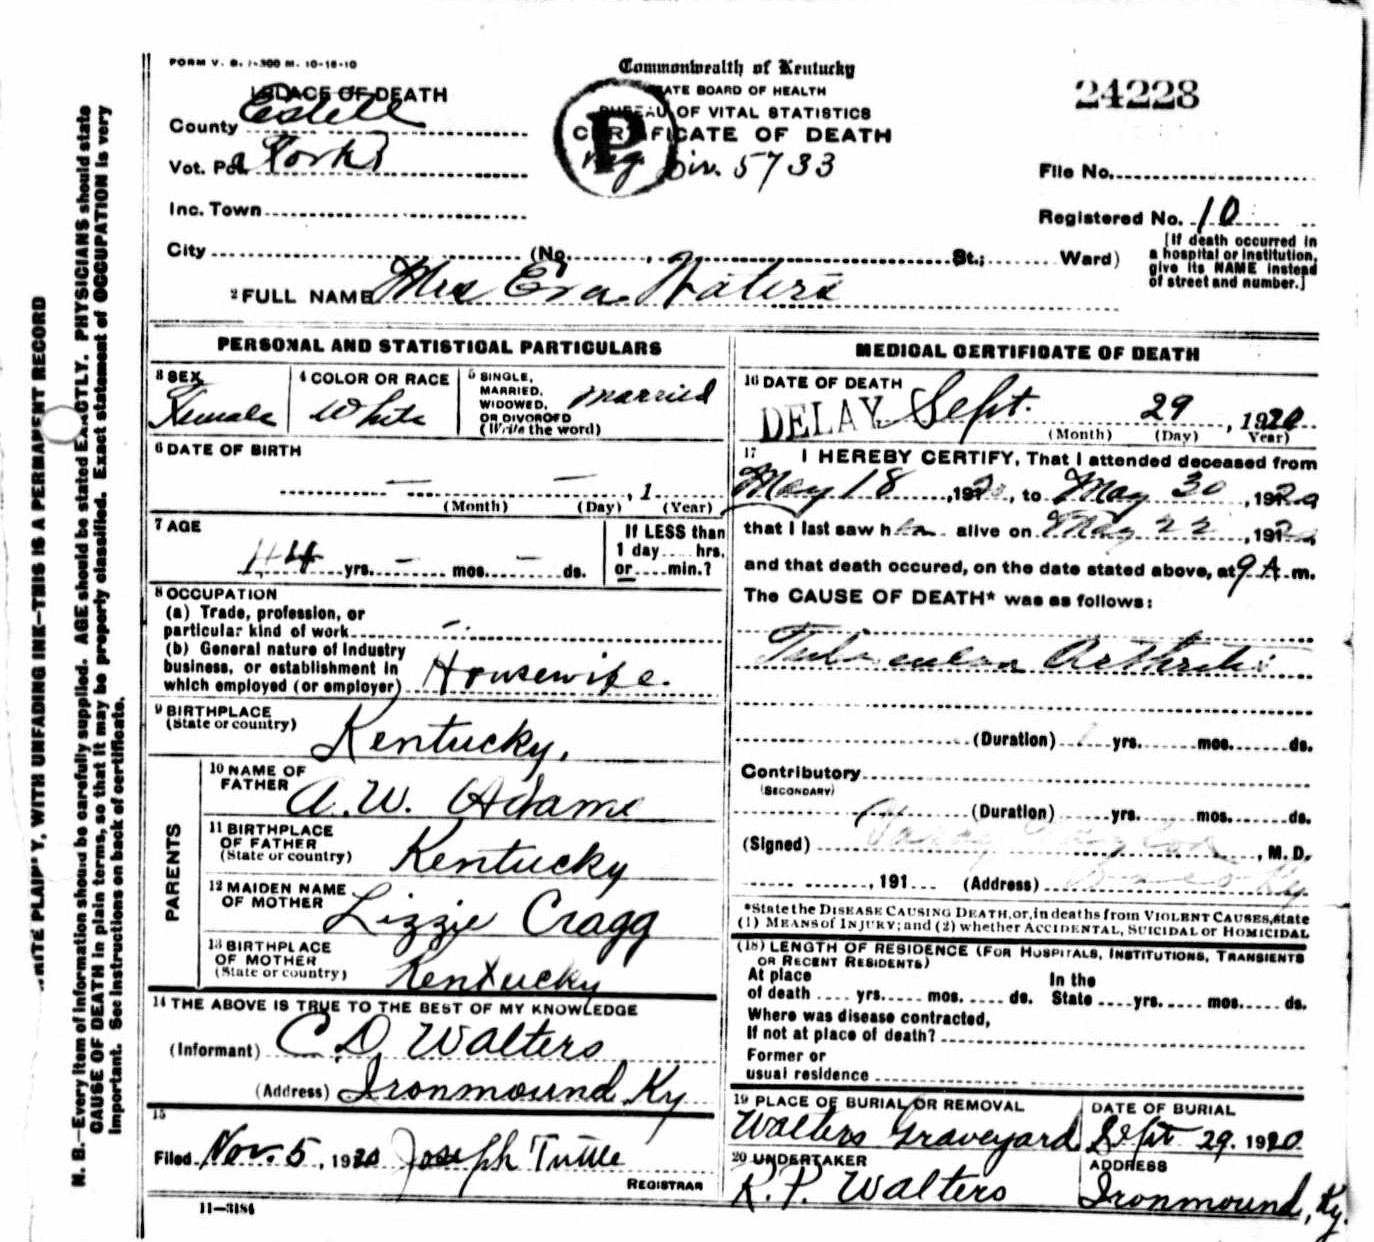 FORM V. S. 1-300 M. 10-18-10
Commonwealth of Kentucky
STATE BOARD OF HEALTH
BUREAU OF VITAL STATISTICS
CERTIFICATE OF DEATH
P
Reg Div. 5733
24228
PLACE OF DEATH
County Estell
Vot. Pct
Inc. Town
City (No. St.; Ward)
File No.
Registered No. 10
[If death occurred in
a hospital or institution,
give its NAME instead
of street and number.]
2 FULL NAME Mrs Eva Waters
PERSONAL AND STATISTICAL PARTICULARS
3 SEX
Female
4 COLOR OR RACE
White
5 SINGLE,
MARRIED,
WIDOWED,
OR DIVORCED
(Write the word)
married
6 DATE OF BIRTH
— — , 1
(Month) (Day) (Year)
7 AGE
44 yrs. — mos. — ds.
If LESS than
1 day .... hrs.
or .... min.?
8 OCCUPATION
(a) Trade, profession, or
particular kind of work -
(b) General nature of industry
business, or establishment in
which employed (or employer) Housewife.
9 BIRTHPLACE
(State or country)
Kentucky.
PARENTS
10 NAME OF
FATHER
A.W. Adams
11 BIRTHPLACE
OF FATHER
(State or country)
Kentucky
12 MAIDEN NAME
OF MOTHER
Lizzie Cragg
13 BIRTHPLACE
OF MOTHER
(State or country)
Kentucky
14 THE ABOVE IS TRUE TO THE BEST OF MY KNOWLEDGE
(Informant) C.D. Walters
(Address) Ironmound Ky
15
Filed Nov. 5, 1920 Joseph Tuttle
REGISTRAR
11—3184
MEDICAL CERTIFICATE OF DEATH
16 DATE OF DEATH
DELAY Sept. 29, 1920
(Month) (Day) Year)
17 I HEREBY CERTIFY, That I attended deceased from
May 18, 1920, to May 30, 1920,
that I last saw her alive on May 22, 1920,
and that death occured, on the date stated above, at 9 A. m.
The CAUSE OF DEATH* was as follows:
Tubercular Arthritis
(Duration) yrs. mos. ds.
Contributory
(SECONDARY)
(Duration) yrs. mos. ds.
(Signed) , M. D.
, 191 (Address) Ky
*State the DISEASE CAUSING DEATH, or, in deaths from VIOLENT CAUSES, state
(1) MEANS of INJURY; and (2) whether ACCIDENTAL, SUICIDAL or HOMICIDAL
(18) LENGTH OF RESIDENCE (FOR HOSPITALS, INSTITUTIONS, TRANSIENTS
OR RECENT RESIDENTS)
At place In the
of death .... yrs. .... mos. .... ds. State .... yrs. .... mos. .... ds.
Where was disease contracted,
If not at place of death?
Former or
usual residence
19 PLACE OF BURIAL OR REMOVAL
Walters Graveyard
DATE OF BURIAL
Sept 29. 1920
20 UNDERTAKER
R. P. Walters
ADDRESS
Ironmound, Ky.
WRITE PLAINLY, WITH UNFADING INK—THIS IS A PERMANENT RECORD
N. B.—Every item of information should be carefully supplied. AGE should be stated EXACTLY. PHYSICIANS should state
CAUSE OF DEATH in plain terms, so that it may be properly classified. Exact statement of OCCUPATION is very
important. See instructions on back of certificate.